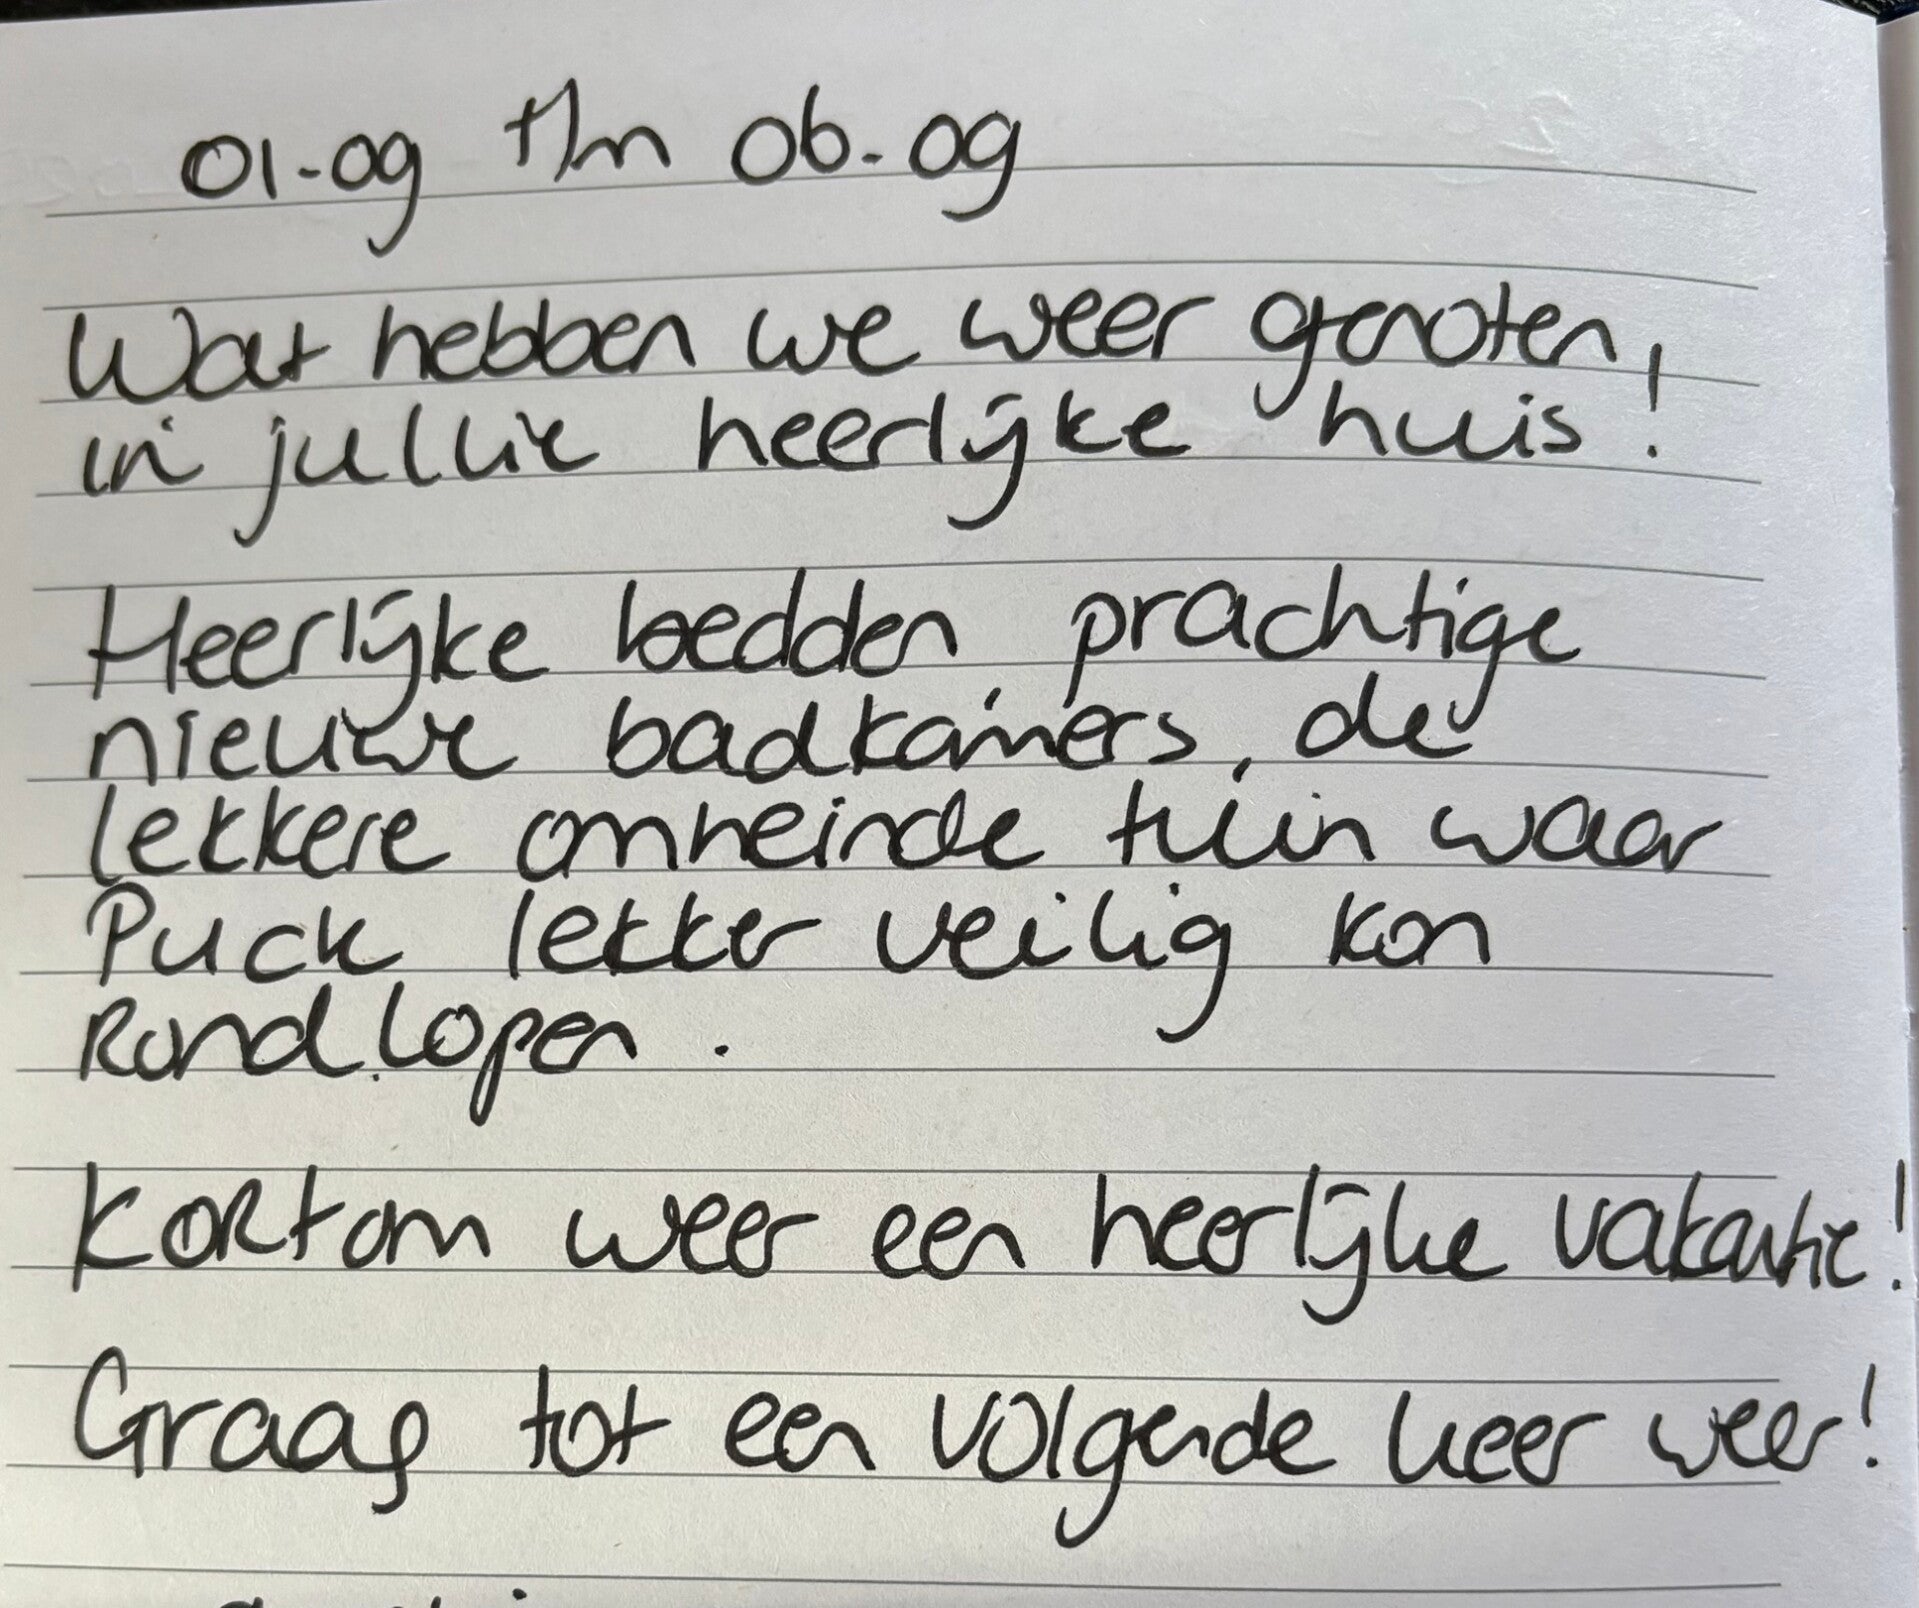 01-09 t/m 06-09
Wat hebben we weer genoten,
in jullie heerlijke huis!
Heerlijke bedden, prachtige
nieuwe badkamers, de
lekkere omheinde tuin waar
Puck lekker veilig kon
Rondlopen.
Kortom weer een heerlijke vakantie!
Graag tot een volgende keer weer!